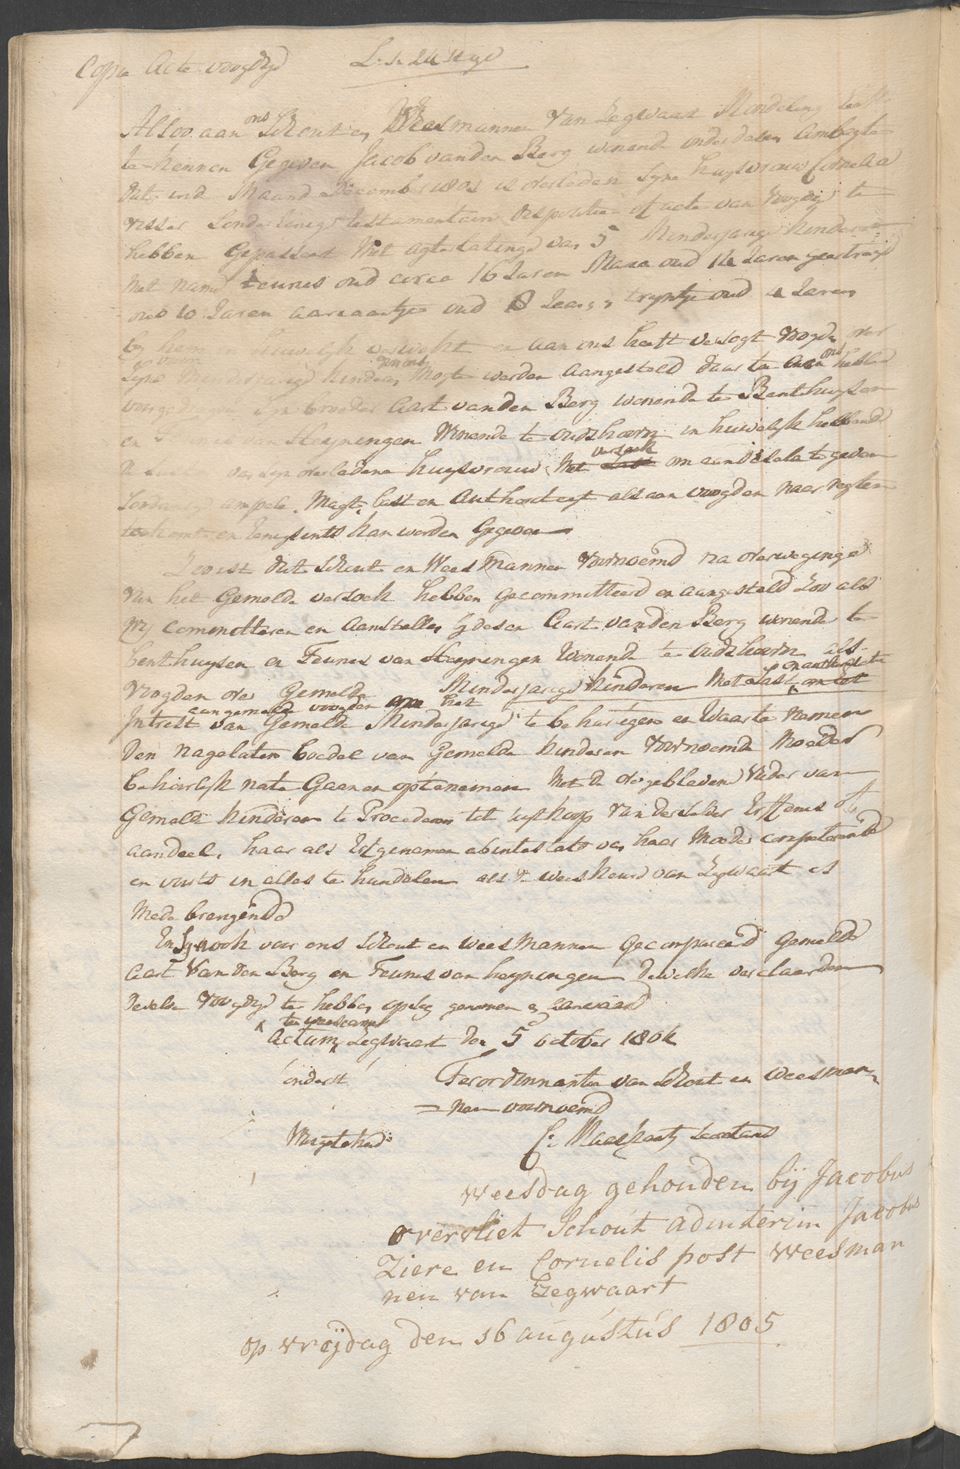 Copia Acte voogdij L: S: 24 st zgl
Alsoo aan ons Schout en Weesmannen van Zegwaart Mondeling
te kennen Gegeven Jacob vanden Berg wonende onder desen Ambagte
dat in de Maand December 1803 is overleden Syne huysvrouw Cornelia
visser Sonder Eenige testamentaire dispositie of acte van voogdij te
hebben Gepasseert Met agterlatinge van 5 Minderjarige kinderen
Met name Teunes oud circa 16 Jaren Maria oud 14 Jaren geertruij
oud 10 Jaren aariaantje oud 8 Jaren, tryntje oud 4 Jaren
by hem huwelijk verwekt en aan ons heeft versogt voogde over
Syne voorn Minderjarige kinderen Mogte werden Aangesteld daar toe aan ons hebbende
voorgedragen syn broeder Aart vanden Berg wonende te Benthuysen
en Teunes van Heyningen Wonende te Oudshoorn in huwelijk hebbende
de suster van syn overledene huysvrouw Met versoek om aan deselve te geven
Sodanige ampele Magt, last en Authoriteyt als aan voogden naar regten
toekomt en Eenigsints kan werden Gegeven
Zoo ist dat Schout en Weesmannen voornoemd na overweginge
van het Gemelde versoek hebben gecommitteerd en aangesteld Zoo als
wy committeren en Aanstellen by desen Aart vanden Berg wonende te
benthuysen en Teunes van Heyningen Wonende te Oudshoorn als
voogden over Gemelde Minderjarige kinderen Met Last om
aan gemelde voogden om het
Intrest van Gemelde Minderjarige te behartigen en Waar te Nemen
den nagelaten boedel van Gemelde kinderen voornoemde Moeder
behoorlijk nate Gaan en optenemen Met de overgebleven vader van
Gemelde kinderen te Procederen tot uytkoop van derselver Erffenis of
aandeel, haar als Erfgenamen abintestato van haar Moeder competerende
en voorts in alles te handelen als de Weeskeure van Zegwaart is
Mede brengende
En Syn ook voor ons Schout en Weesmannen Gecompareerd gemelde
Aart Van den Berg en Teunes van heyningen dewelke verclaarden
deselve voogdije te hebben op sig genomen en aanvaard
Actum Zegwaart den 5 october 1804
onderst Ter ordonnantie van Schout en Weesman-
= nen voornoemd
Was getekend C: Maes Secretaris
Weesdag gehouden bij Jacobus
overvliet Schout adinterim Jacobus
Ziere en Cornelis post Weesman
nen van Zegwaart
op vrijdag den 16 augustus 1805